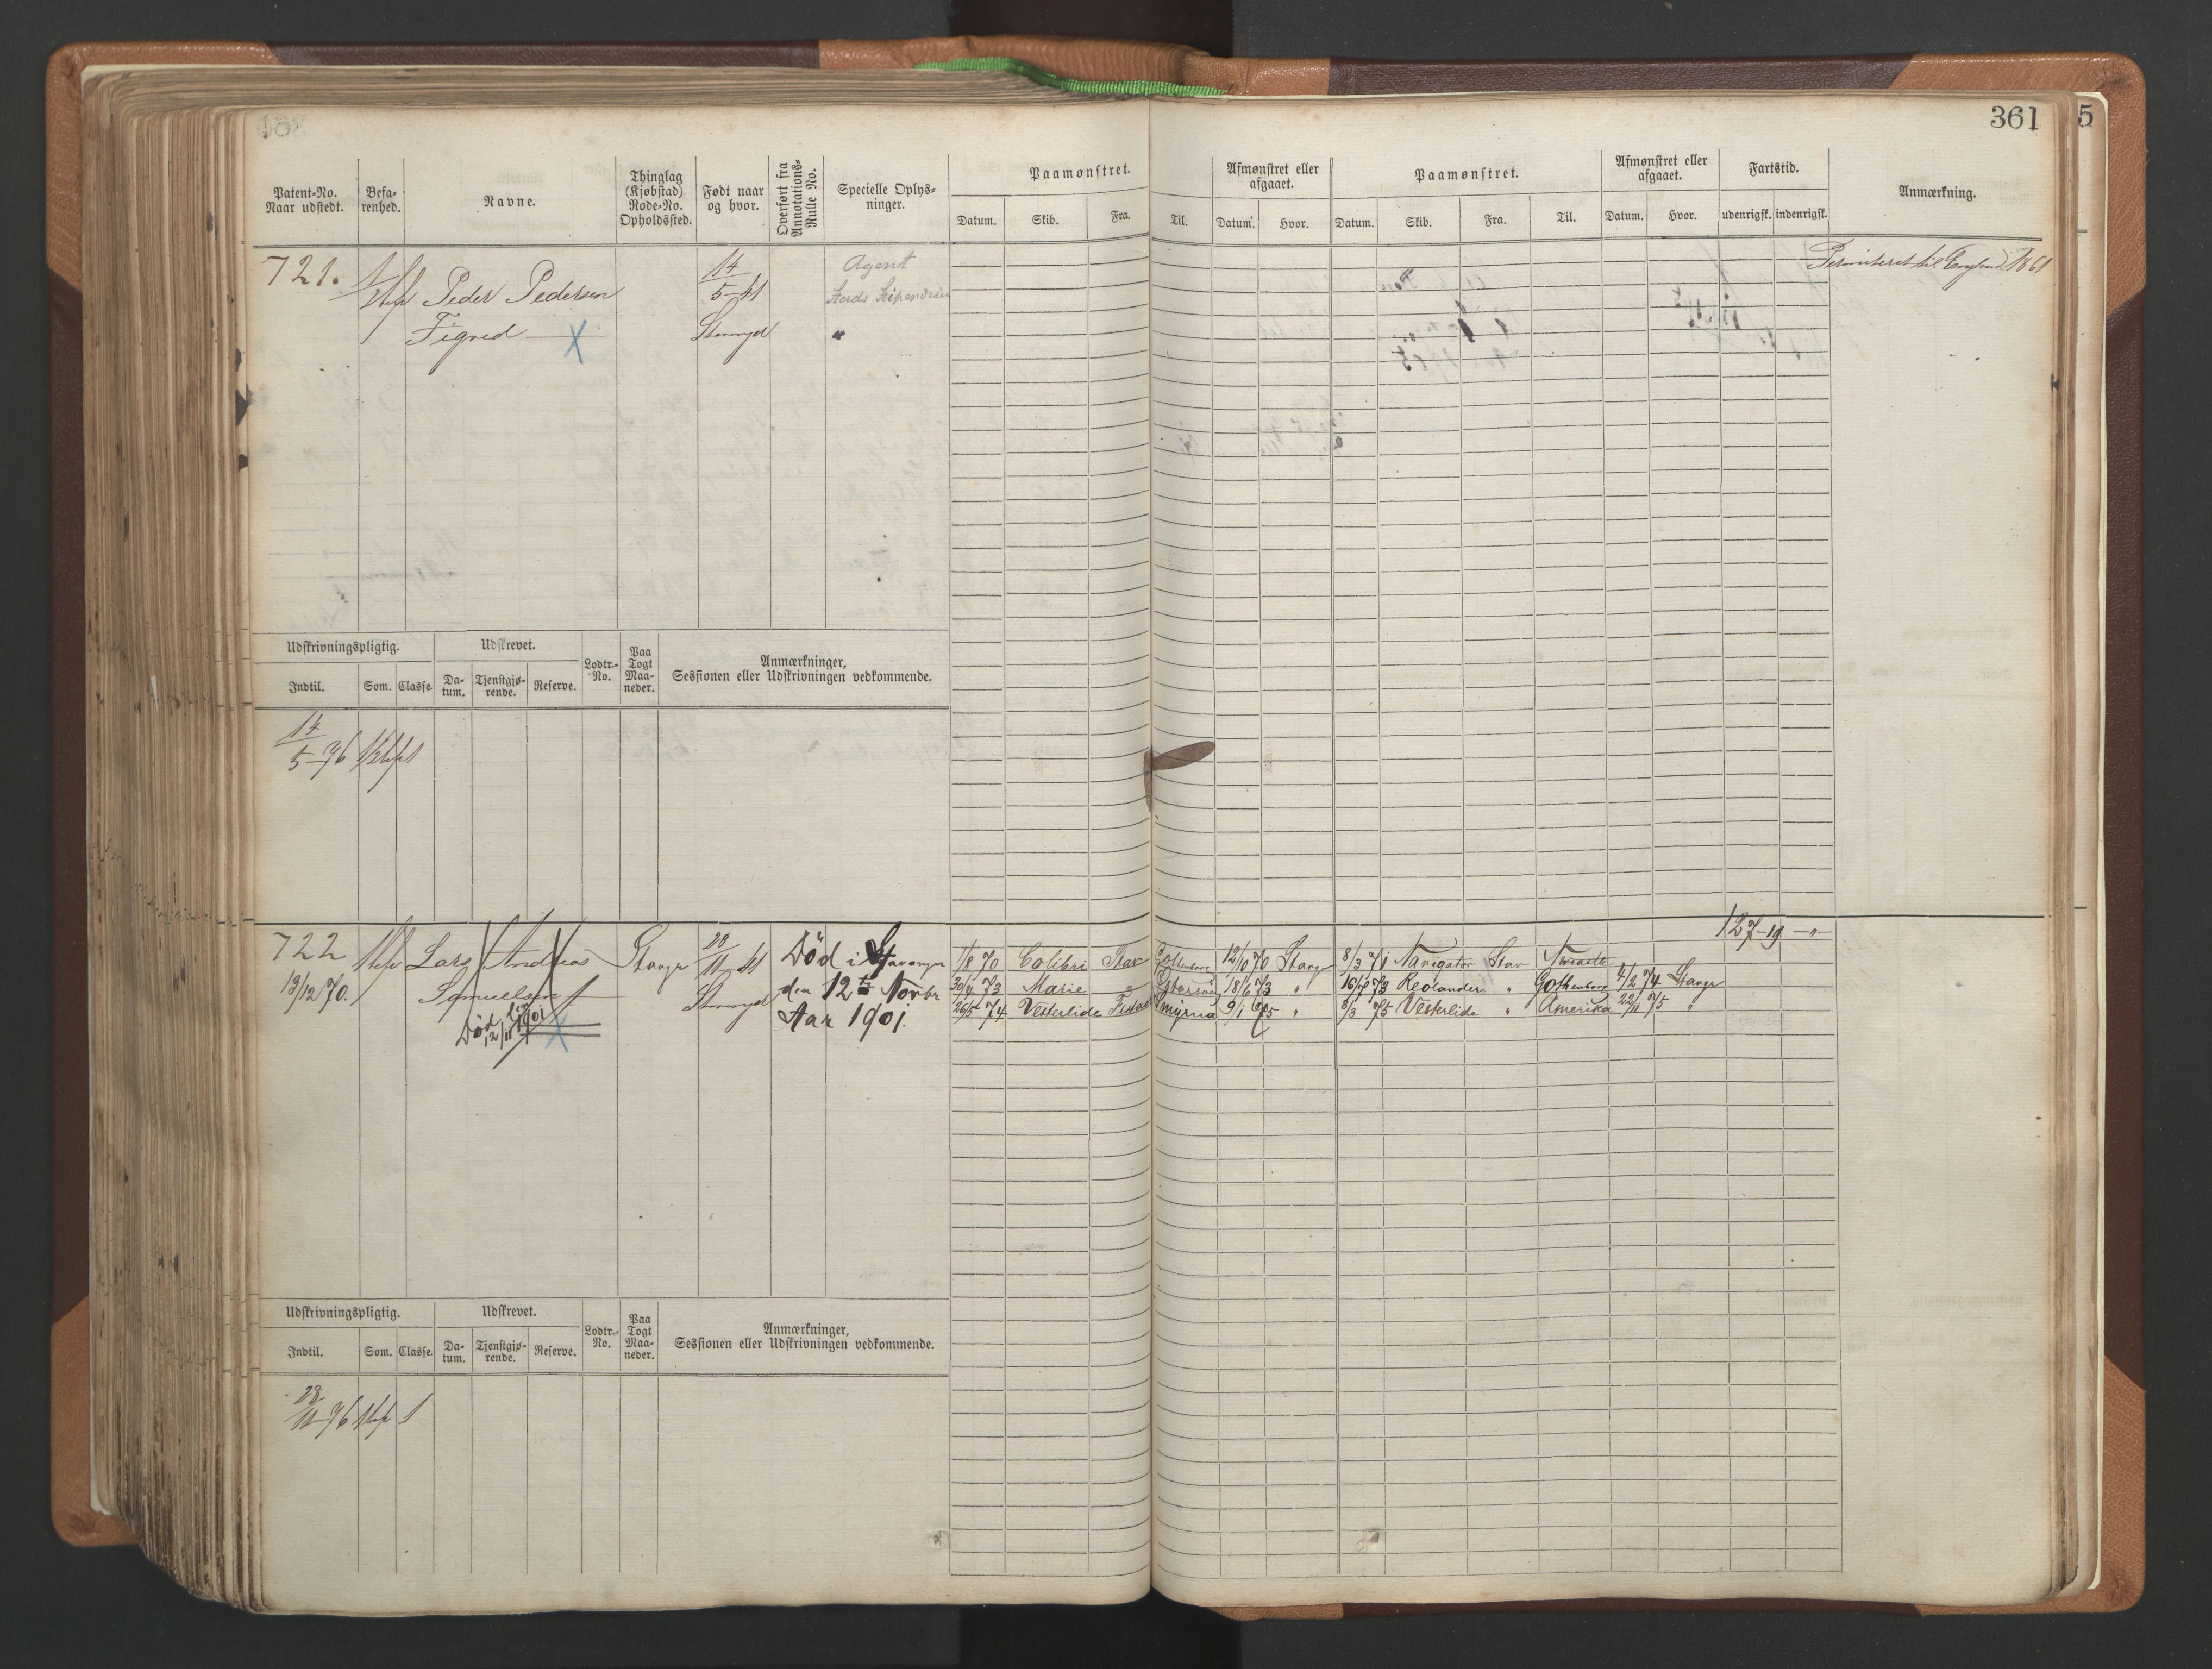 361
5
Patent-No. Naar udstedt.
Befa-renhed.
Navne.
Thinglag (Kjøbstad) Rode-No. Opholdssted.
Født naar og hvor.
Overført fra Annotations-Rulle No.
Specielle Oplys-ninger.
Paamønstret.
Datum. Skib. Fra. Til.
Afmønstret eller afgaaet.
Datum. Hvor.
Paamønstret.
Datum. Skib. Fra. Til.
Afmønstret eller afgaaet.
Datum. Hvor.
Fartstid.
udenrigsk. indenrigsk.
Anmærkning.
721.
Peder Pedersen
Figved
14
5-41
Agent
Permiteret til England 1861
Udskrivningspligtig. Udskrevet. Lodtr.-No. Paa Togt Maa-neder. Anmærkninger, Sessionen eller Udskrivningen vedkommende.
Indtil. Som. Classe. Da-tum. Tjenstgjø-rende. Reserve.
14
5-76 1
722
13/12 70.
Lars Andreas
Samuelsen
Død
12/11 1901
Stavgr
28
11 41
Død i Stavanger
den 12te Novbr
Aar 1901.
127-19-"-
1/8 70 Colibri Stav Gothenborg 12/10 70 Stavgr 8/3 71 Navigator Stav
30/4 73 Marie " Østersøen 18/6 73 " 16/7 73 Reolander " Gothenborg 4/2 74 Stavgr
26/5 74 Vesterlide Smyrna 9/1 75 " 8/3 75 Vesterlide " Amerika 22/11 75 "
Udskrivningspligtig. Udskrevet. Lodtr.-No. Paa Togt Maa-neder. Anmærkninger, Sessionen eller Udskrivningen vedkommende.
Indtil. Som. Classe. Da-tum. Tjenstgjø-rende. Reserve.
28
11-76 1